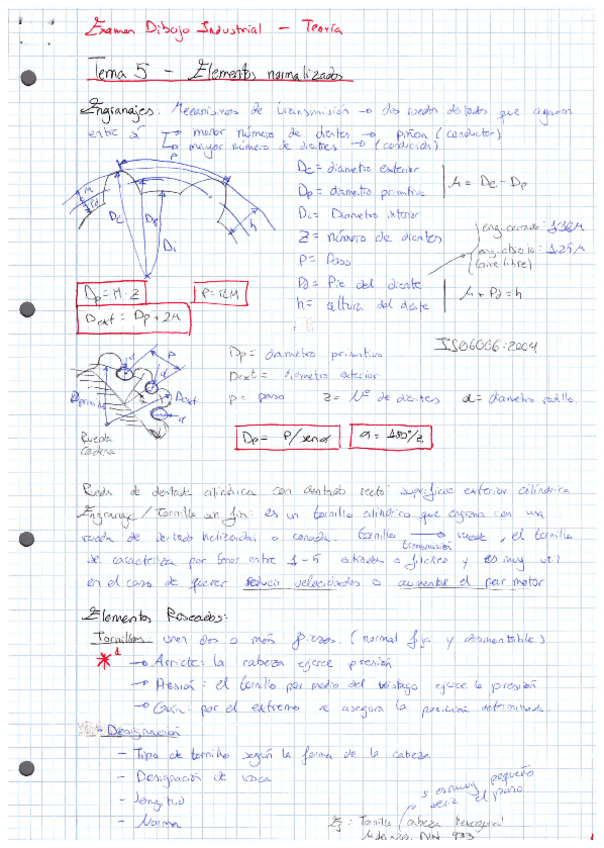 Examen Dibujo Industrial - Teoría
Tema 5 - Elementos normalizados
Engranajes. Mecanismos de transmisión → dos ruedas dentadas que
entre sí menor número de dientes → piñón (conductor)
mayor número de dientes → (conducida)
De = diametro exterior
Dp = diametro primitivo
Di = Diametro interior
Z = número de dientes
P = Paso
Pd = Pie del diente
h = altura del diente
M = De - Dp
eng. cerrado:
eng. abierto: 1'25M
(aire libre)
M + Pd = h
Dp = M · Z
Dext = Dp + 2M
ISO6006:2004
Dp = diametro primitivo
Dext = diametro exterior
p = paso
Z = Nº de dientes
d = diametro rodillo
Rueda
Cadena
Dp = P/senα
α = 180°/Z
Rueda de dentada cilíndrica con dentado recto: superficie exterior cilíndrica
Engranaje / Tornillo sin fin: es un tornillo cilíndrico que engrana con una
rueda de dentado helicoidal o . tornillo → rueda, el tornillo
transmisión
se caracteriza por tener entre 1-5 entradas o y es muy util
en el caso de querer reducir velocidades o aumentar el par motor
Elementos Roscados:
Tornillos unen dos o más piezas. (normal fija y desmontable)
*1
→ Apriete: la cabeza ejerce presión
→ Presión: el tornillo por medio del vástago ejerce la presión
→ Guía: por el extremo se asegura la posición determinada.
- Designación
- Tipo de tornillo según la forma de la cabeza
- Designación de rosca
- Longitud
- Norma
es muy pequeño
el paso
Ej: Tornillo cabeza hexagonal
DIN 933